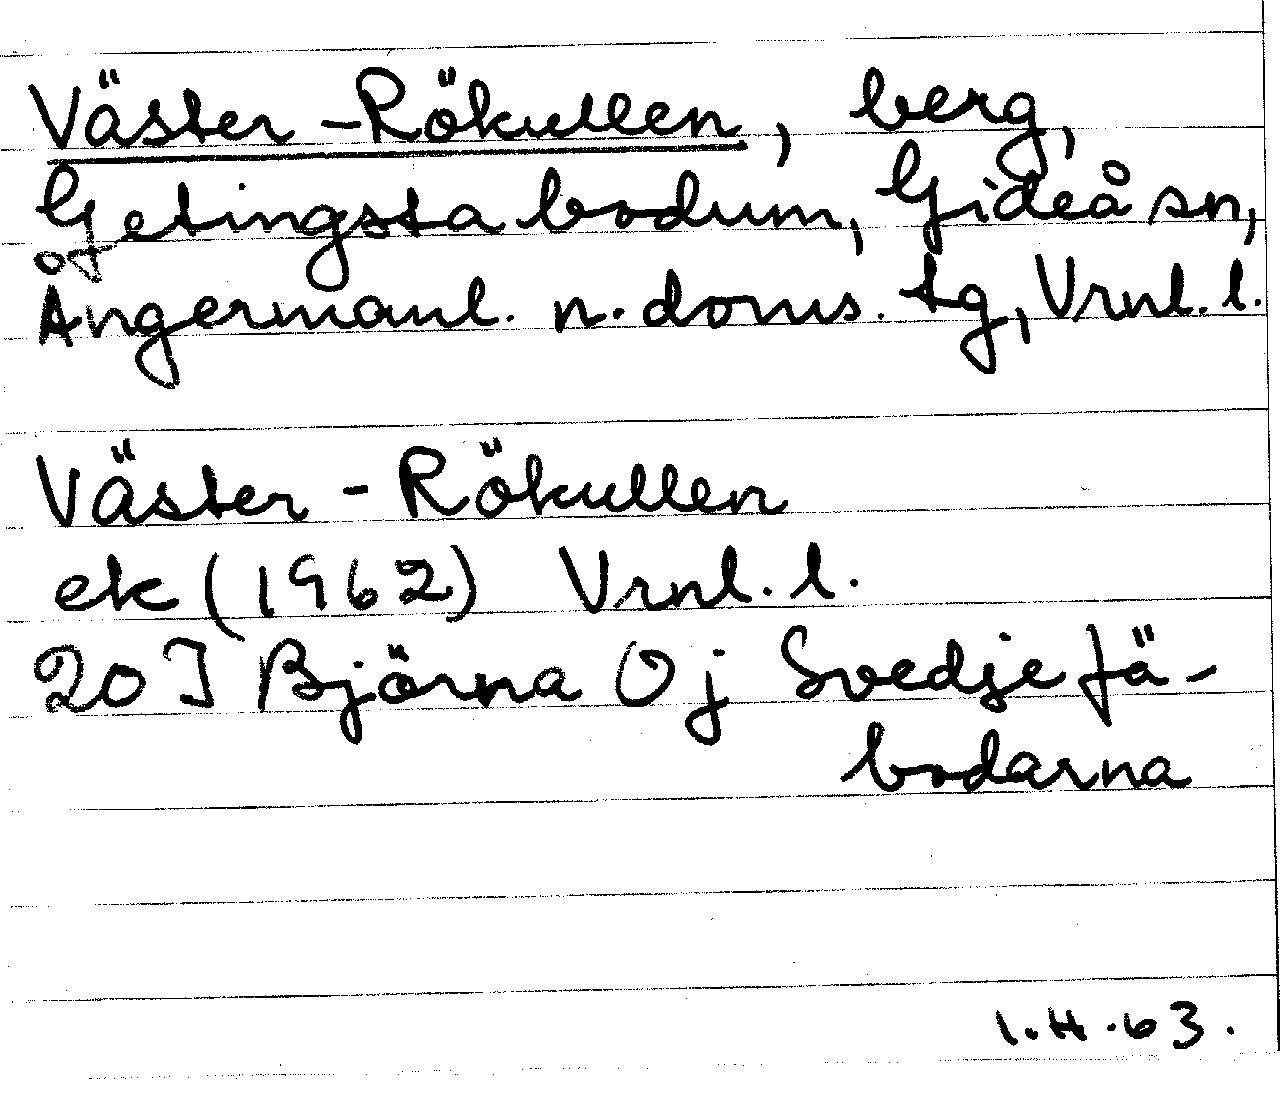 Väster-Rökullen, berg,
Getingsta bodum, Gideå sn,
Ångermanl. n. doms. tg, Vrnl. l.
Väster-Rökullen
ek (1962) Vrnl. l.
20 I Björna 0 j Svedjefä-
bodarna
I.H.63.